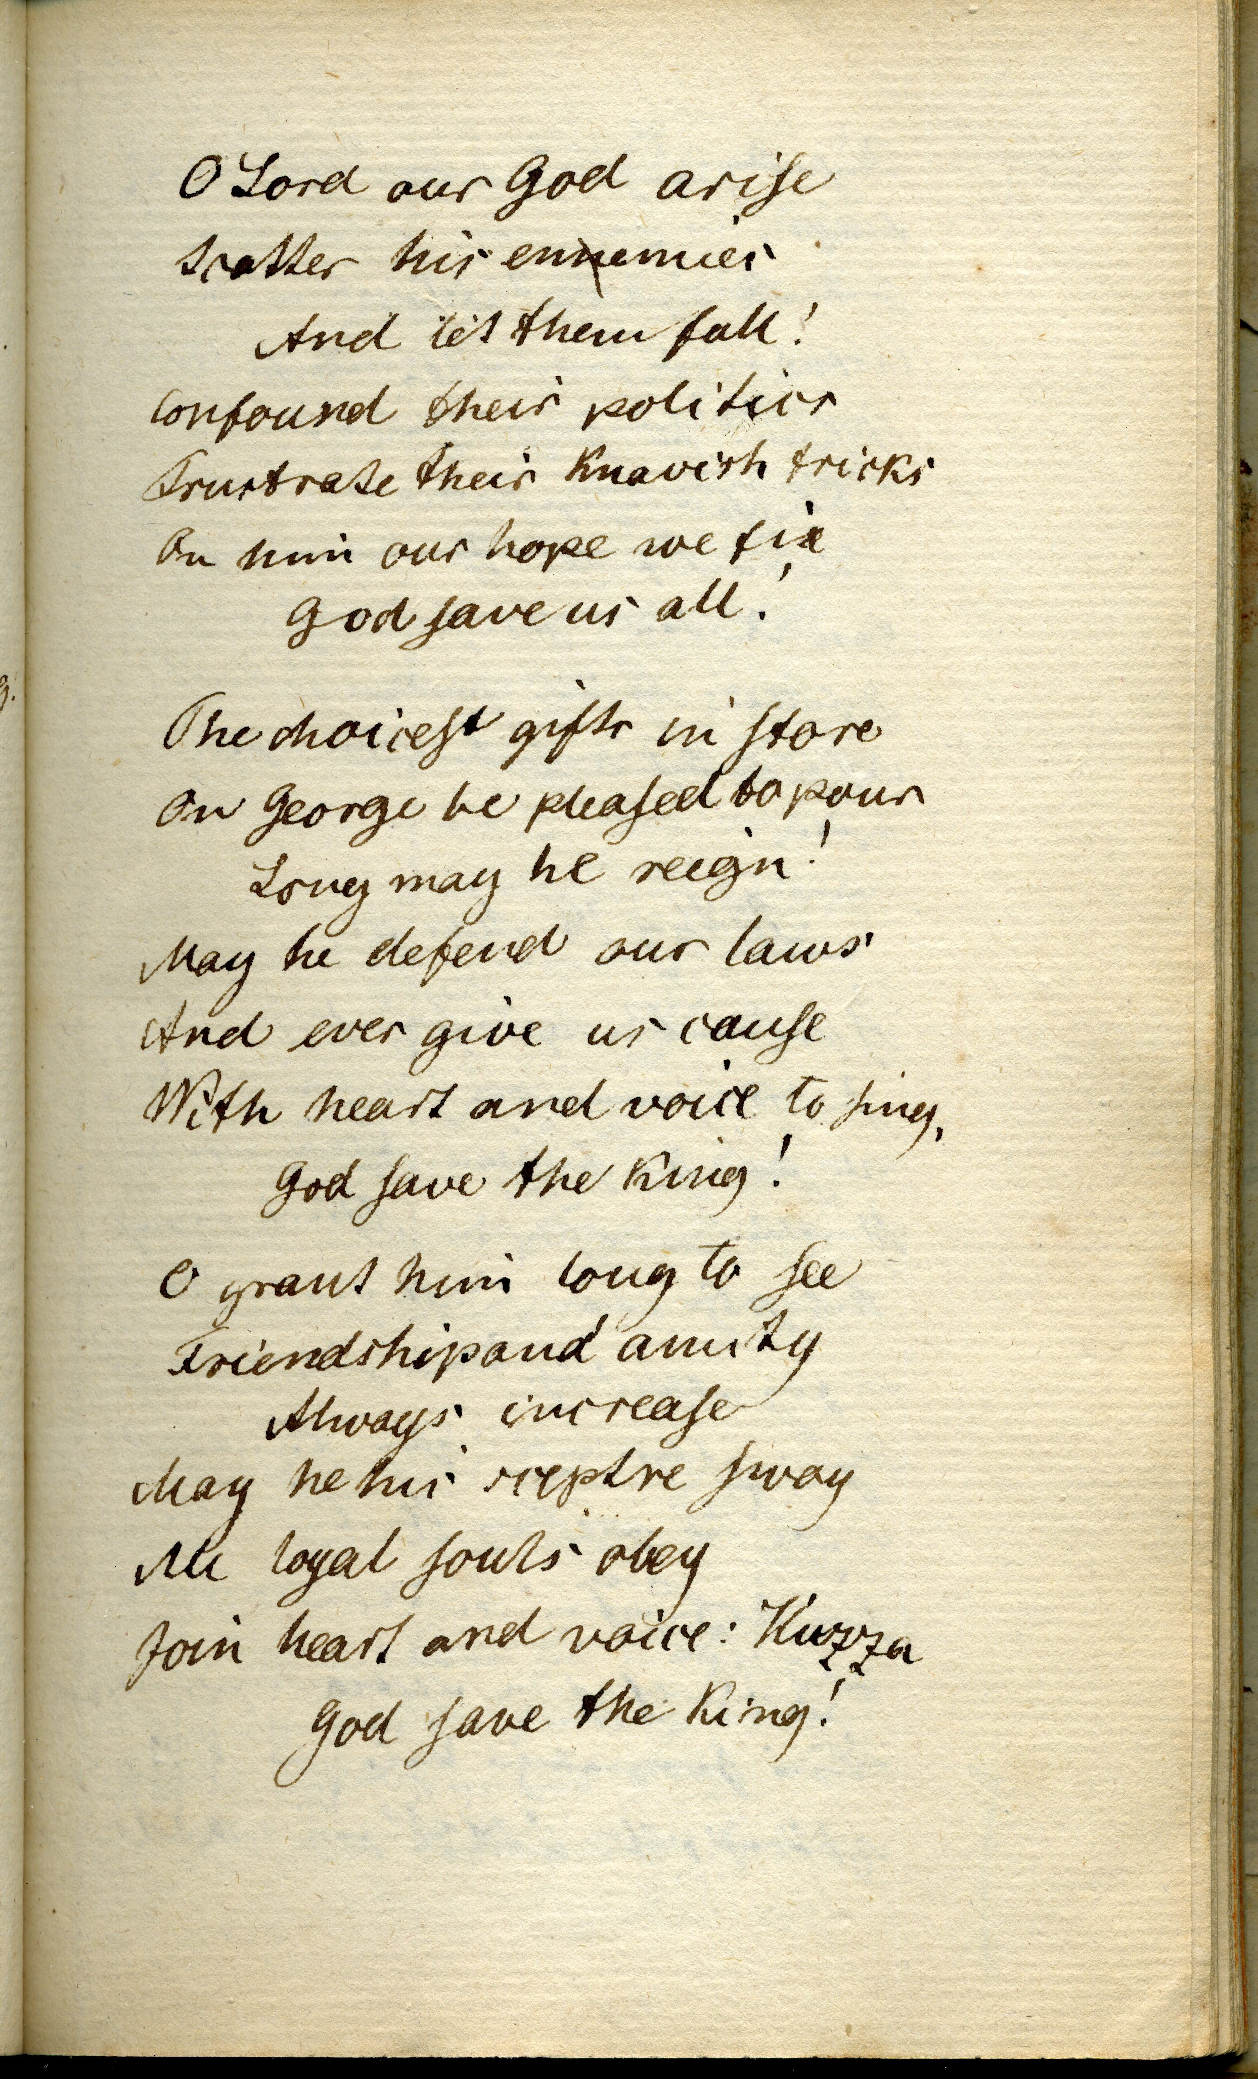 O Lord our God arise
Scatter his enemies
And let them fall!
Confound their politics
Frustrate their Knavish tricks
On him our hope we fix
God save us all!
The choicest gifts in store
On George be pleased to pour
Long may he reign!
May he defend our laws
And ever give us cause
With heart and voice to sing,
God save the King!
O grant him long to see
Friendship and amity
Always increase
May he his sceptre sway
All loyal souls obey
Join heart and voice: Huzza
God save the King!